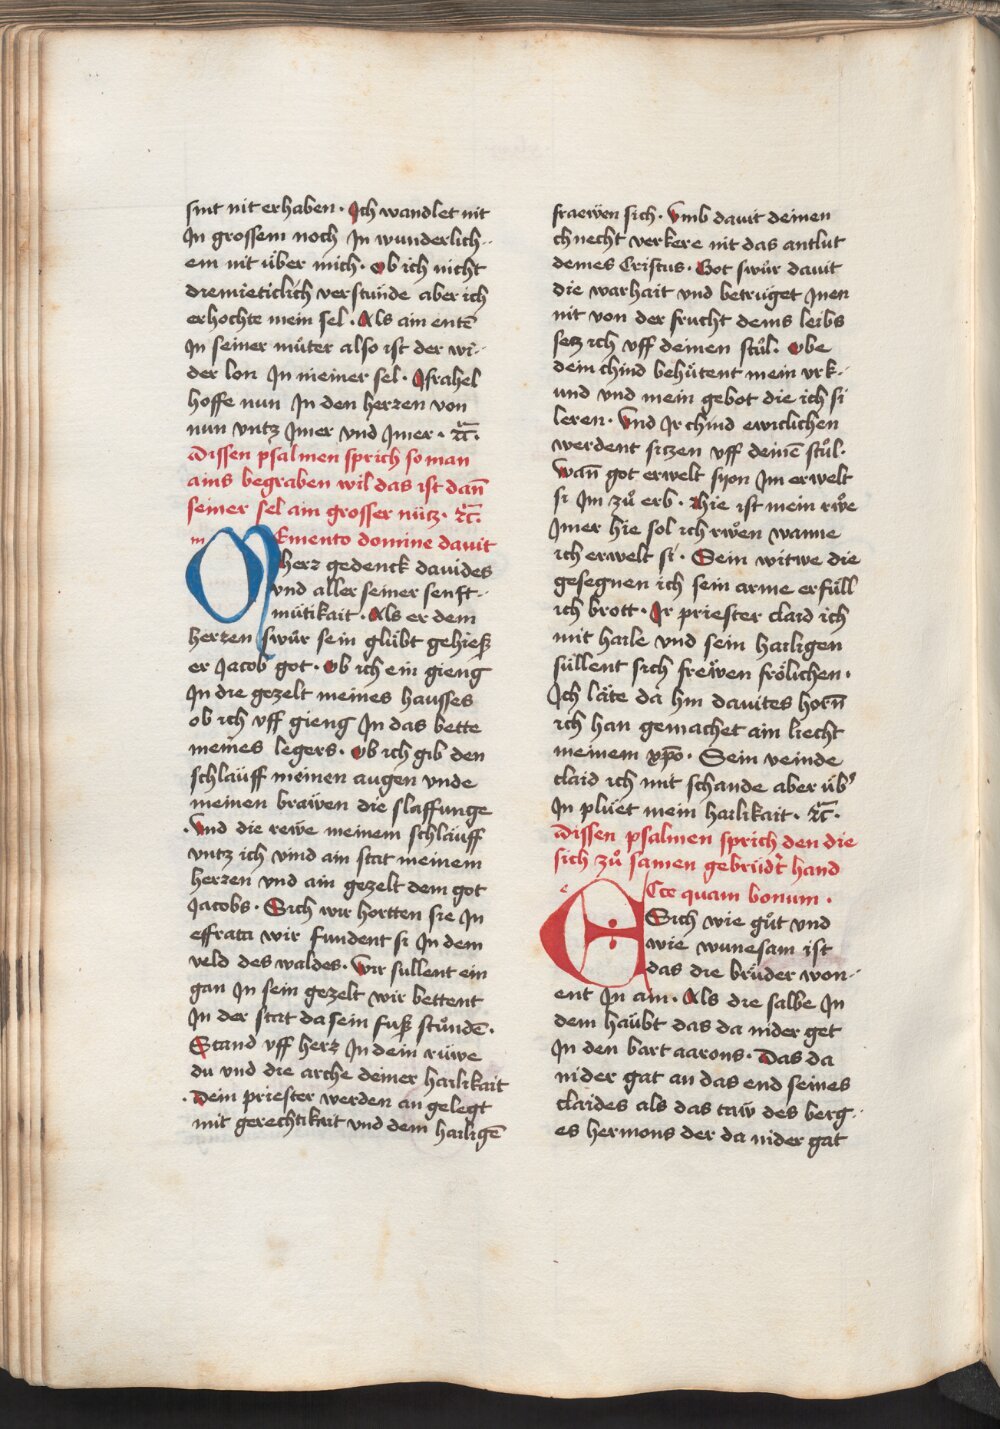 sint nit erhaben · Ich wandlet nit
In grossem noch In wunderlich-
em nit über mich · Ob ich nicht
diemieticlich verstunde aber ich
erhochte mein sel · Als ain entē
In seiner müter also ist der wi-
der lon In meiner sel · Israhel
hoffe nun In den herzen von
nun vntz Imer vnd Imer · ꝛc̄ ·
Dissen psalmen sprich so man
ains begraben wil das ist dañ
seiner sel ain grosser nütz · ꝛc̄ ·
m Emento domine dauit
herz gedenck dauides
vnd aller seiner senft-
mütikait · Als er dem
herzen swůr sein glübt gehieß
er Jacob got · Ob ich ein gieng
In die gezelt meines hausses
ob ich vff gieng In das bette
meines legers · Ob ich gib den
schläuff meinen augen vnde
meinen bräwen die slaffunge
· Vnd die rewe meinem schläuff
vntz ich vind ain stat meinem
herzen vnd ain gezelt dem got
Jacobs · Sich wir hortten sie In
effrata wir fundent si In dem
veld des waldes · Wir sullent ein
gan In sein gezelt wir bettent
In der stat da sein fuß stůndē ·
Stand vff herz In dein rüwe
du vnd die arche deiner hailikait
· Dein priester werden an gelegt
mit gerechtikait vnd dein hailigē
fraewen sich · Vmb dauit deinen
chnecht verkere nit das antlut
deines Cristus · Got swůr dauit
die warhait vnd betruget Inen
nit von der frucht deins leibs
setz ich vff deinen stůl · Obe
dein chind behütent mein vrk-
und vnd mein gebot die ich si
leren · Vnd Ir chind ewiclichen
werdent sitzen vff deinē stůl ·
Wañ got erwelt syon Im erwelt
si Im zů erb · Hie ist mein rwe
Imer hie sol ich rwen wanne
ich erwelt si · Sein witwe die
gesegnen ich sein arme erfüll
ich brott · Ir priester claid ich
mit haile vnd sein hailigen
süllent sich frewen frölichen ·
Ich läte da hin dauites horñ
ich han gemachet ain liecht
meinem xp̄o · Sein veinde
claid ich mit schande aber üb'
In pluet mein hailikait · ꝛc̄ ·
Dissen psalmen sprich den die
sich zů samen gebrüd't hand
e Cce quam bonum ·
Sich wie gůt vnd
wie wunesam ist
das die brüder won-
ent In ain · Als die salbe In
dem haübt das da nider get
In den bart aarons · Das da
nider gat an das end seines
claides als das taw des berg-
es hermons der da nider gat